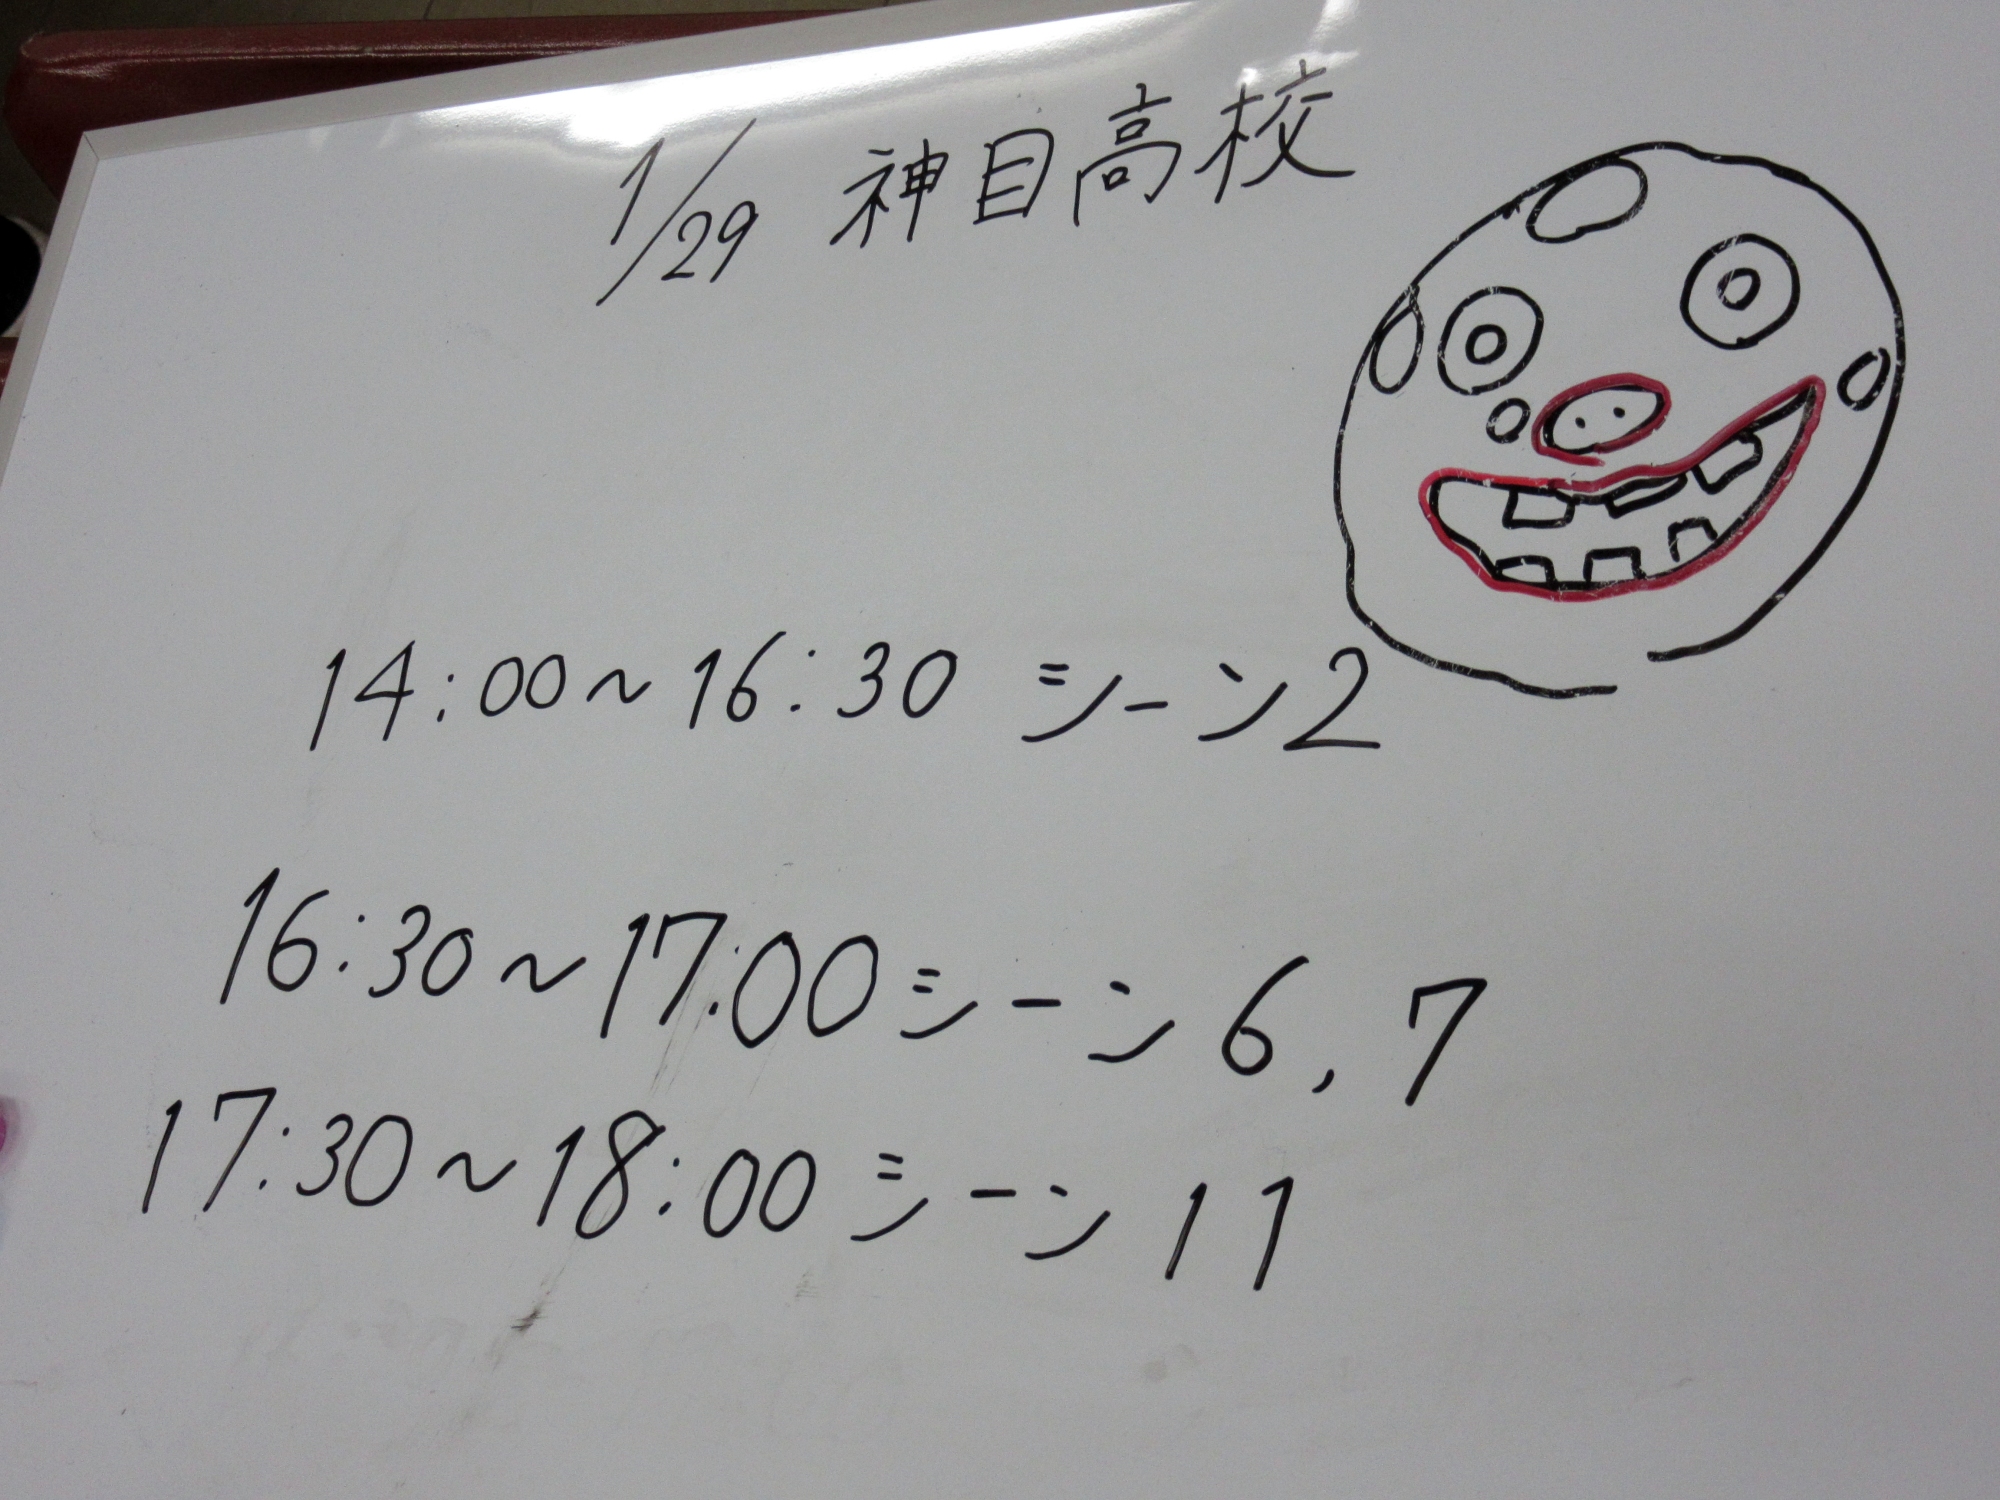 1/29 神目高校
14:00~16:30 シーン2
16:30~17:00シーン6,7
17:30~18:00シーン11